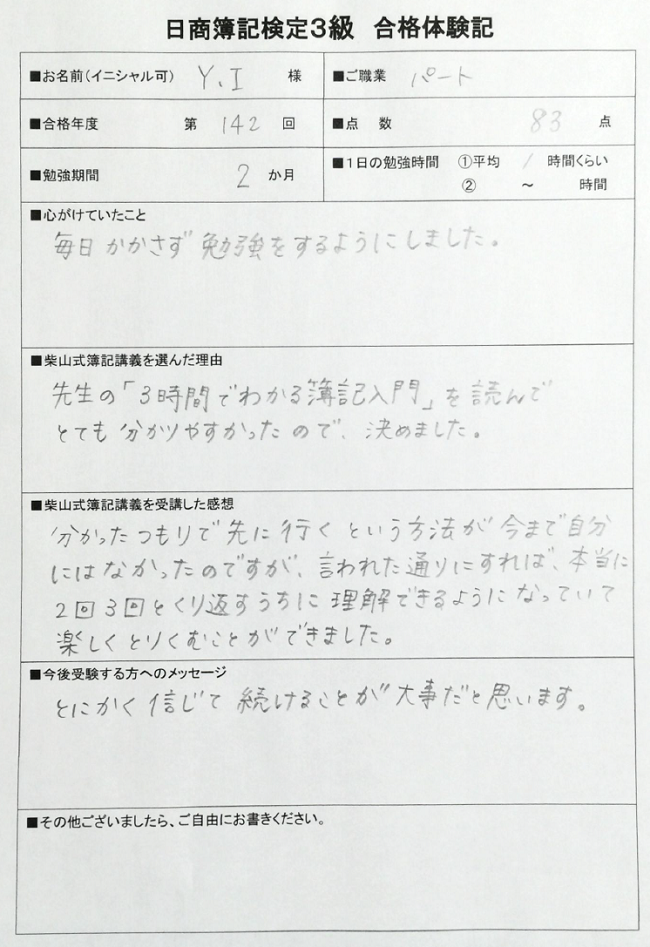 日商簿記検定3級 合格体験記
■お名前(イニシャル可) Y.I 様 ■ご職業 パート
■合格年度 第 142 回 ■点 数 83 点
■勉強期間 2 か月 ■1日の勉強時間 ①平均 1 時間くらい
② ～ 時間
■心がけていたこと
毎日かかさず勉強をするようにしました。
■柴山式簿記講義を選んだ理由
先生の「3時間でわかる簿記入門」を読んで
とても分かりやすかったので、決めました。
■柴山式簿記講義を受講した感想
分かったつもりで先に行くという方法が今まで自分
にはなかったのですが、言われた通りにすれば、本当に
2回3回とくり返すうちに理解できるようになっていて
楽しくとりくむことができました。
■今後受験する方へのメッセージ
とにかく信じて続けることが大事だと思います。
■その他ございましたら、ご自由にお書きください。